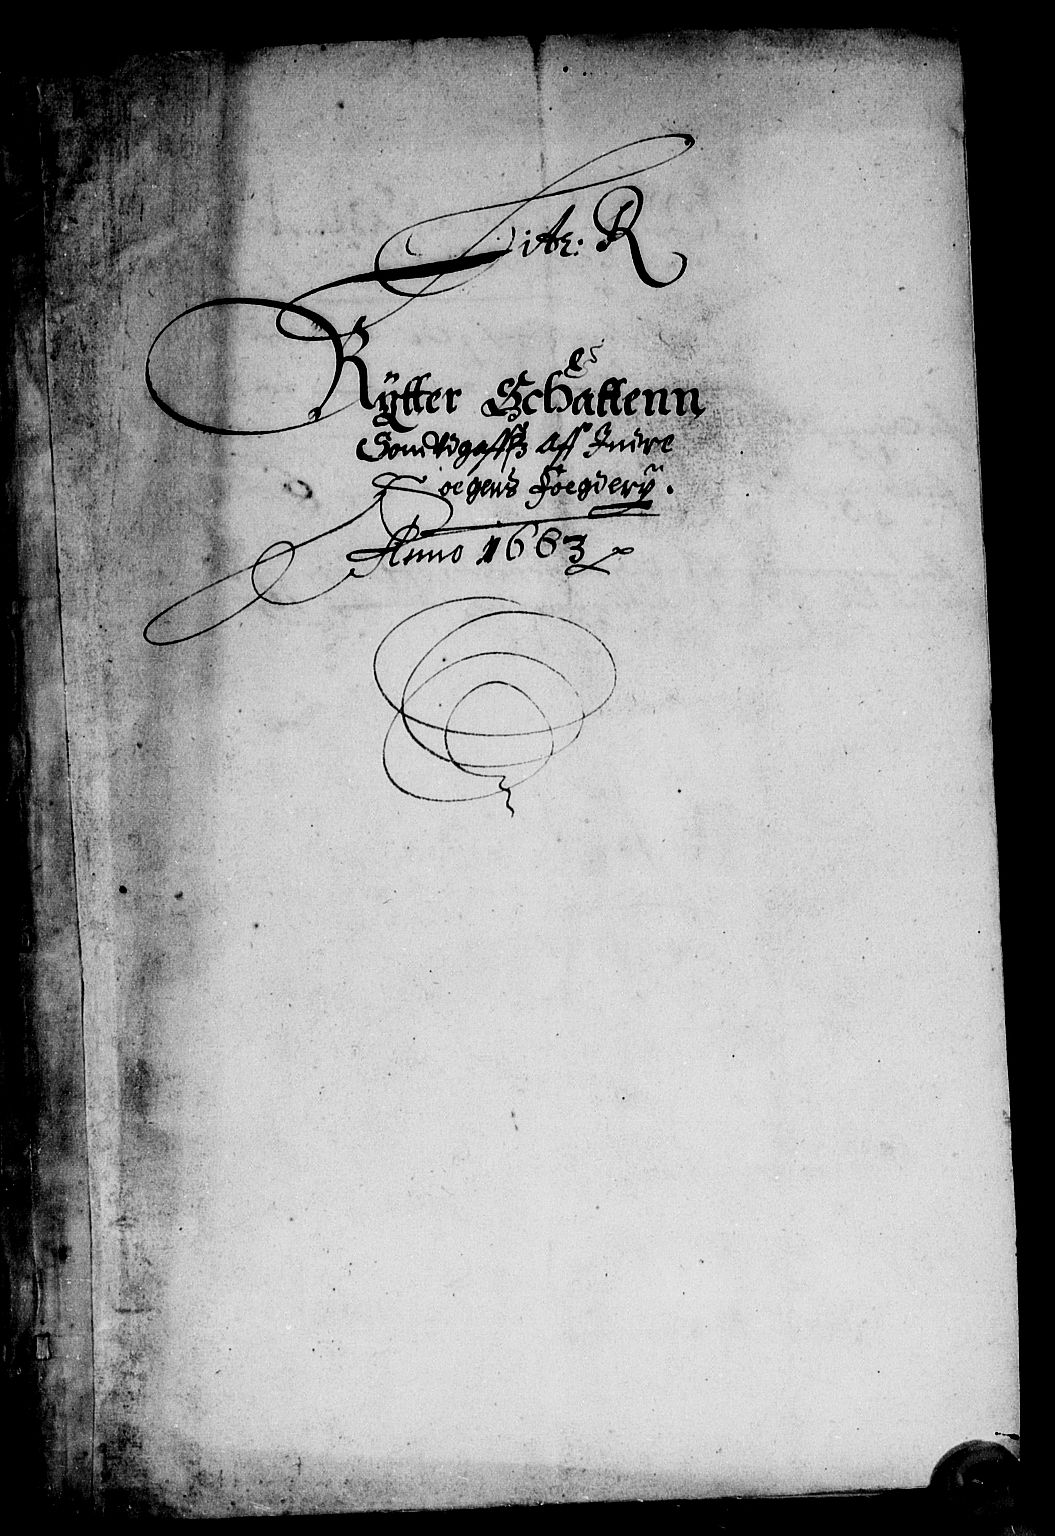 Liter: R
Rÿtter Schattenn
Som Udgaffs aff Indre
Sognens Foegderÿ.
Anno 1663